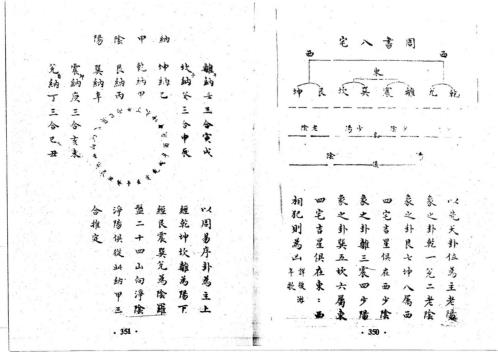 周書八宅
西 西
東
乾 兌 離 震 巽 坎 艮 坤
老陰 少陽 少陰
陰 儀
以先天卦位為主老陽
象之卦乾一兌二老陰
象之卦艮七坤八屬西
四宅吉星俱在西少陰
象之卦離三震四少陽
象之卦巽五坎六屬東
四宅吉星俱在東:西
相犯則為凶
年
· 350 ·
納甲陰陽
離納壬三合寅戌
坎納癸三合申辰
坤納乙
乾納甲
艮納丙
巽納辛
震納庚三合亥未
兌納丁三合巳丑
以周易序卦為主上
經乾坤坎離為陽下
經艮震巽兌為陰羅
盤二十四山向淨陰
淨陽俱從此納甲三
合推定
· 351 ·